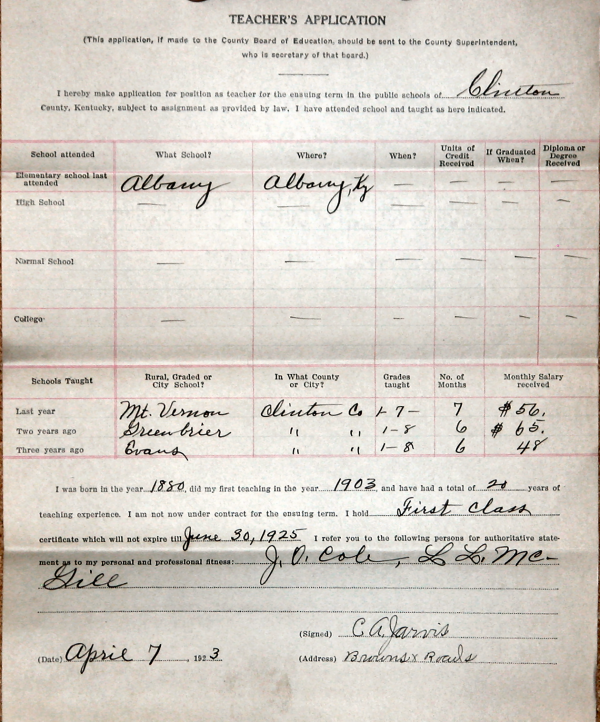 TEACHER'S APPLICATION
(This application, if made to the County Board of Education, should be sent to the County Superintendent,
who is secretary of that board.)
I hereby make application for position as teacher for the ensuing term in the public schools of Clinton
County, Kentucky, subject to assignment as provided by law. I have attended school and taught as here indicated.
School attended What School? Where? When? Units of Credit Received If Graduated When? Diploma or Degree Received
Elementary school last attended Albany Albany, Ky — — — —
High School — — — — — —
Normal School — — — — — —
College — — — — — —
Schools Taught Rural, Graded or City School? In What County or City? Grades taught No. of Months Monthly Salary received
Last year Mt. Vernon Clinton Co 1-7- 7 $56.
Two years ago Greenbrier " " 1-8 6 $65.
Three years ago Evans " " 1-8 6 48
I was born in the year 1880, did my first teaching in the year 1903 and have had a total of 20 years of
teaching experience. I am not now under contract for the ensuing term. I hold First Class
certificate which will not expire till June 30, 1925 I refer you to the following persons for authoritative state-
ment as to my personal and professional fitness: J. O. Cole, L L. Mc-
Gill
(Signed) C. A. Jarvis
(Date) April 7, 1923 (Address) Browns x Roads